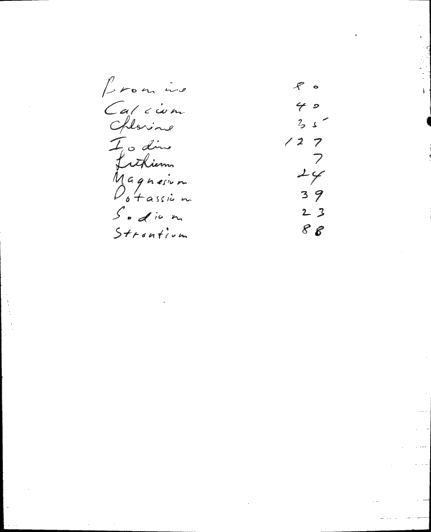 Bromine 80
Calcium 40
Chlorine 35
Iodine 127
Lithium 7
Magnesium 24
Potassium 39
Sodium 23
Strontium 88